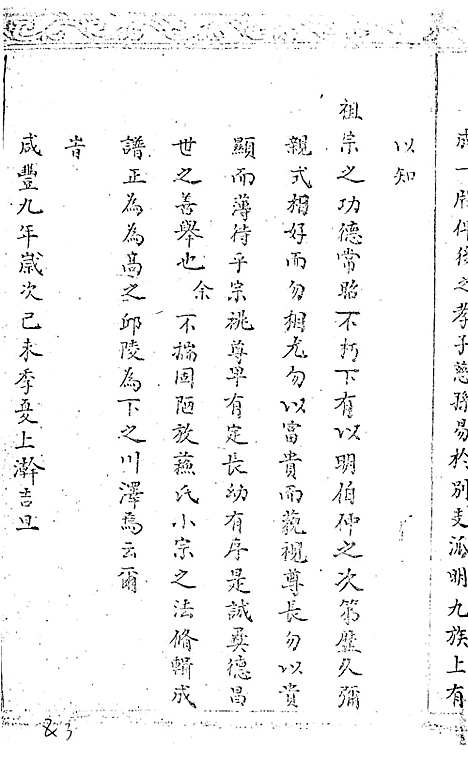 成一牒俾後之孝子慈孫易於別支派明九族上有
以知
祖宗之功德常昭不朽下有以明伯仲之次第歷久彌
親式相好而勿相尤勿以富貴而藐視尊長勿以貴
顯而薄待乎宗祧尊卑有定長幼有序是誠奕德昌
世之善舉也余不揣固陋放蘇氏小宗之法脩輯成
譜正為為高之邱陵為下之川澤焉云爾
旹
咸豐九年歲次己未季夏上澣吉旦
83